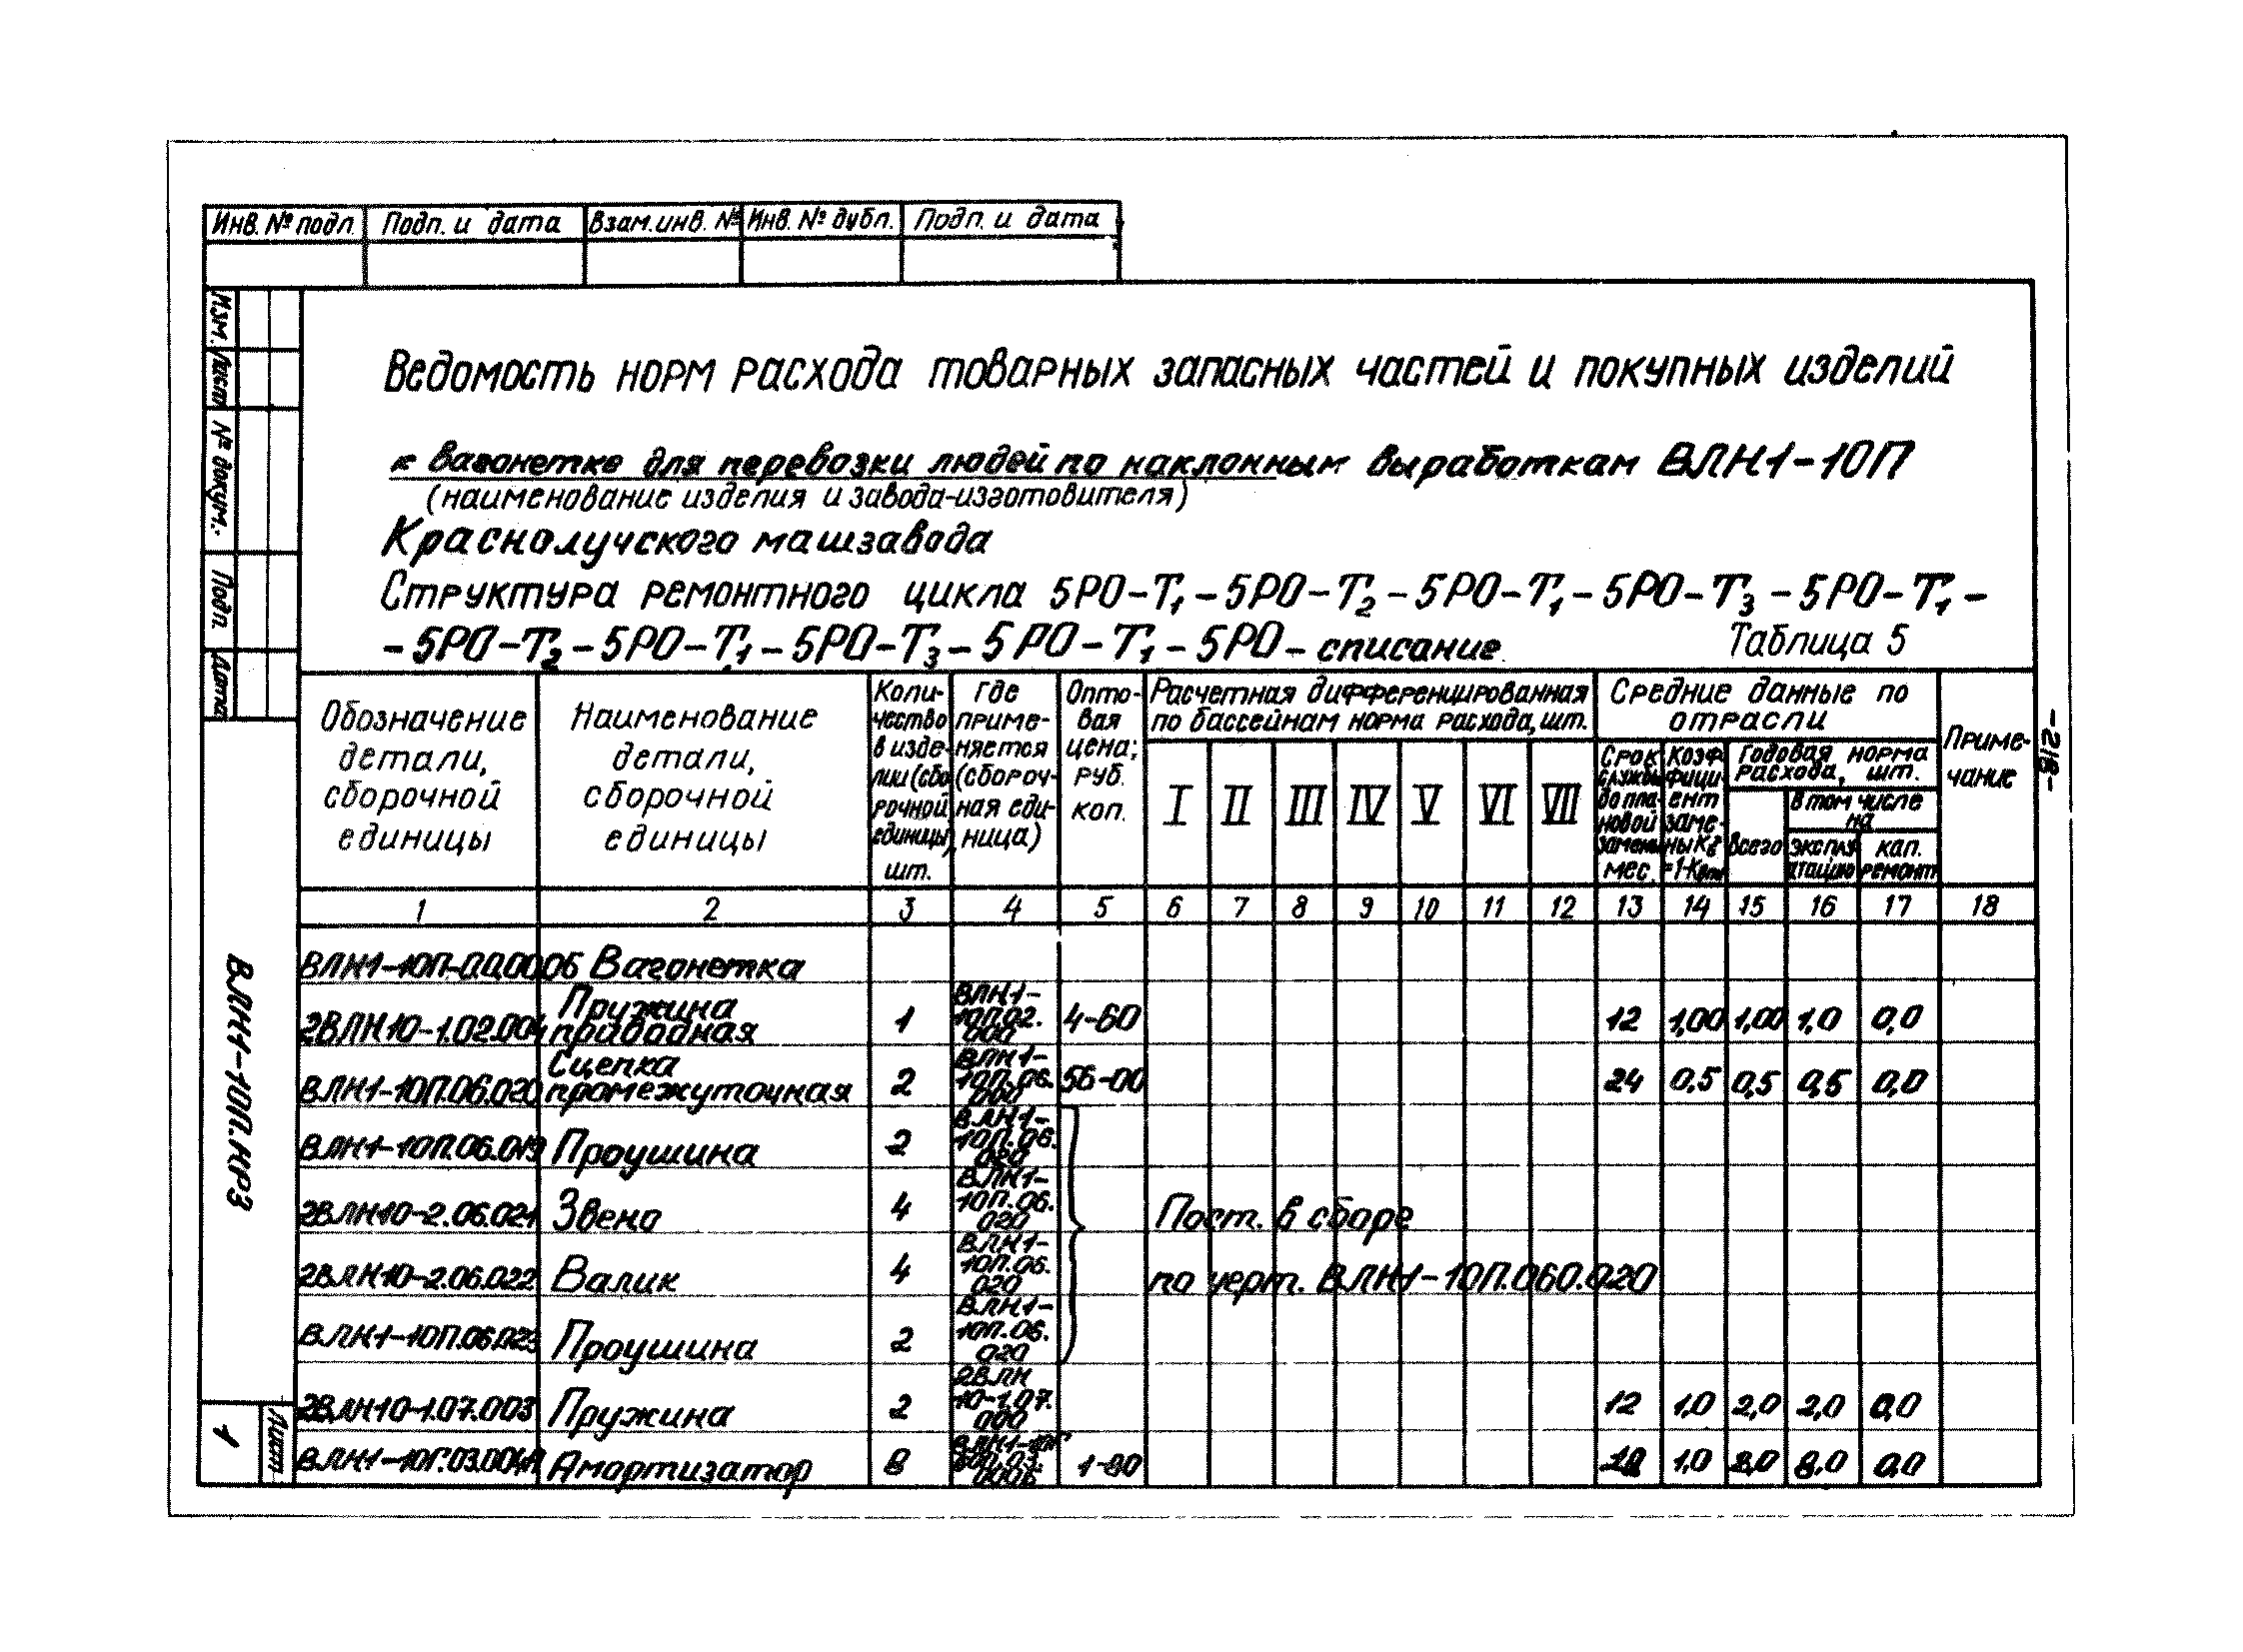 Инв. № подл. Подп. и дата Взам. инв. № Инв. № дубл. Подп. и дата
Изм. Лист № докум. Подп. Дата
Ведомость норм расхода товарных запасных частей и покупных изделий
к вагонетке для перевозки людей по наклонным выработкам ВЛН1-10П
(наименование изделия и завода-изготовителя)
Краснолучского машзавода
Структура ремонтного цикла 5РО-Т1-5РО-Т2-5РО-Т1-5РО-Т3-5РО-Т1-
-5РО-Т2-5РО-Т1-5РО-Т3-5РО-Т1-5РО-списание.
Таблица 5
Обозначение
детали,
сборочной
единицы
Наименование
детали,
сборочной
единицы
Коли-
чество
в изде-
лии (сбо
рочной
единицы),
шт.
Где
приме-
няется
(сбороч-
ная еди-
ница)
Опто-
вая
цена;
руб.
коп.
Расчетная дифференцированная
по бассейнам норма расхода, шт.
I II III IV V VI VII
Средние данные по
отрасли
Срок
службы
до пла-
новой
замены
мес.
Коэф-
фици-
ент
заме-
ны
Годовая норма
расхода, шт.
всего
в том числе
на
эксплу
атацию
кап.
ремонт
Приме-
чание
1 2 3 4 5 6 7 8 9 10 11 12 13 14 15 16 17 18
ВЛН1-10П-00.000СБ Вагонетка
2ВЛН10-1.02.004 Пружина приводная 1 ВЛН1-10П.02.000 4-60 12 1,00 1,00 1,0 0,0
ВЛН1-10П.06.020 Сцепка промежуточная 2 ВЛН1-10П.06.000 56-00 24 0,5 0,5 0,5 0,0
ВЛН1-10П.06.019 Проушина 2 ВЛН1-10П.06.020
2ВЛН10-2.06.021 Звено 4 ВЛН1-10П.06.020 Пост. в сборе
2ВЛН10-2.06.022 Валик 4 ВЛН1-10П.06.020 по черт. ВЛН1-10П.060.020
ВЛН1-10П.06.023 Проушина 2 ВЛН1-10П.06.020
2ВЛН10-1.07.003 Пружина 2 2ВЛН10-1.07.000 12 1,0 2,0 2,0 0,0
Амортизатор 8 1-80 1,0 8,0 8,0 0,0
ВЛН1-10П.НР3
Лист
1
-218-